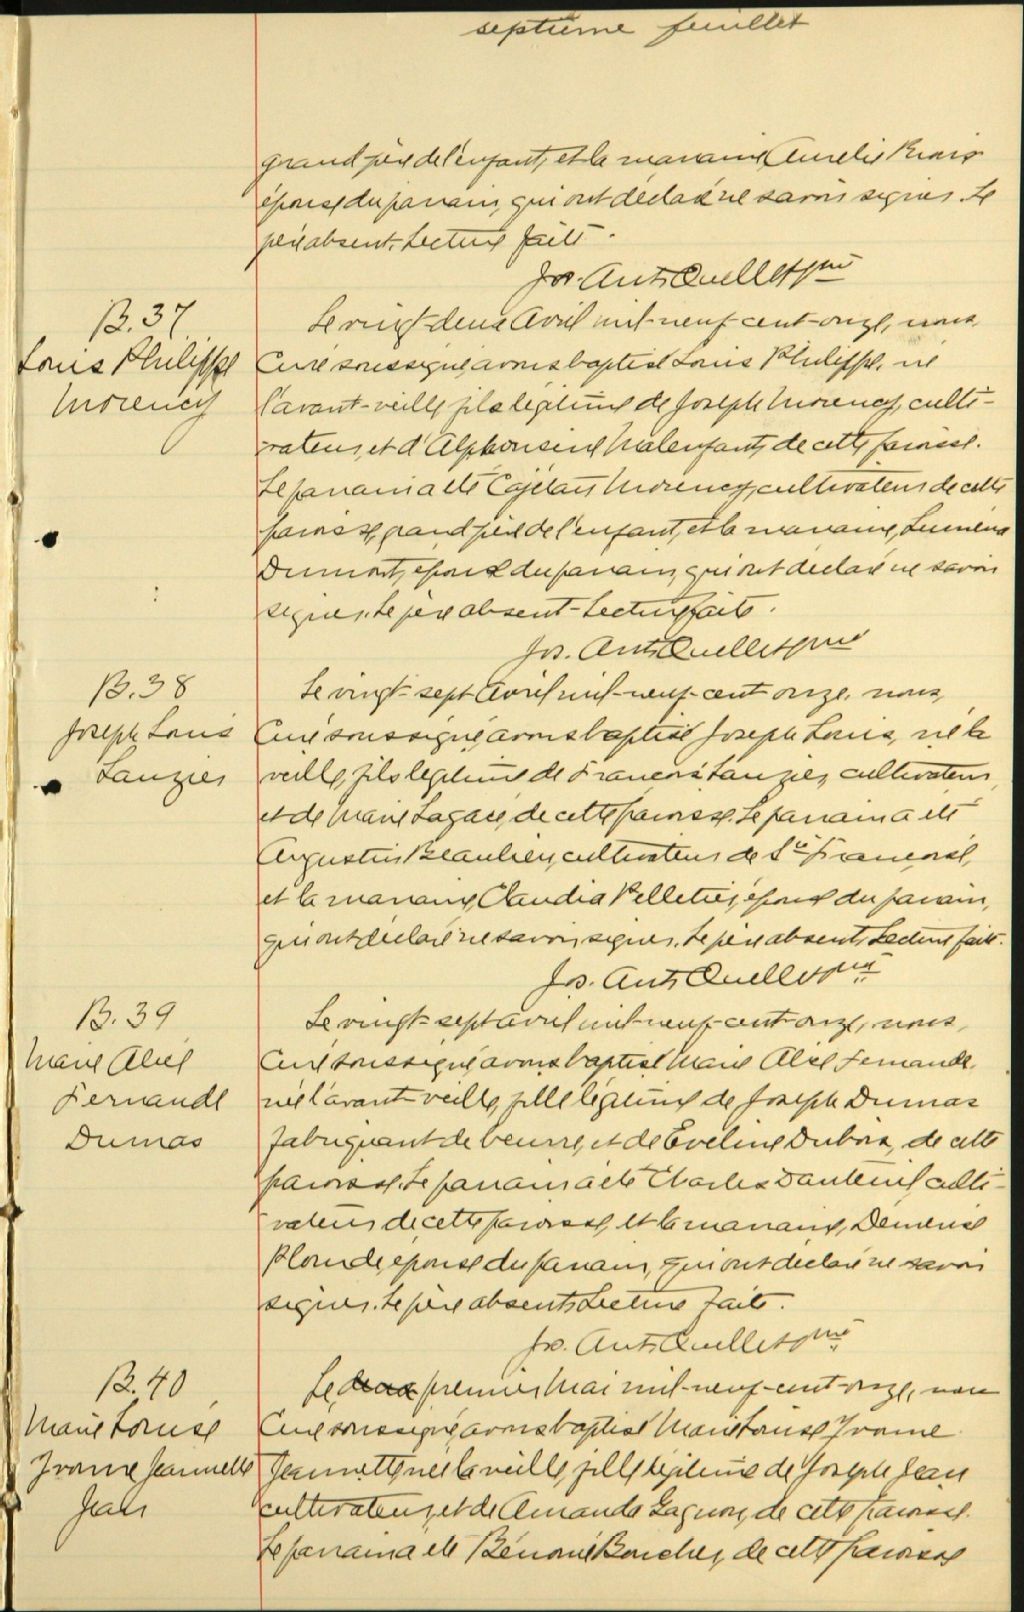 septième feuillet
grand père de l'enfant, et la marraine, Aurelie
épouse du parrain, qui ont déclaré ne savoir signer. Le
père absent. Lecture faite.
Jos. Ant. Ouellet ptre
B. 37
Louis Philippe
Morency
Le vingt-deux Avril mil-neuf-cent-onze, nous,
Curé soussigné, avons baptisé Louis Philippe, né
l'avant-veille, fils légitime de Joseph Morency, culti-
vateur, et d'Alphonsine Malenfant, de cette paroisse.
Le parrain a été Cajétan Morency, cultivateur de cette
paroisse, grand père de l'enfant, et la marraine, Luména
Dumont, épouse du parrain, qui ont déclaré ne savoir
signer. Le père absent. Lecture faite.
Jos. Ant. Ouellet ptre
B. 38
Joseph Louis
Lauzier
Le vingt-sept Avril mil-neuf-cent-onze, nous,
Curé soussigné, avons baptisé Joseph Louis, né la
veille, fils légitime de François Lauzier, cultivateur,
et de Marie Lagacé, de cette paroisse. Le parrain a été
Augustin Beaulieu, cultivateur de St François,
et la marraine, Claudia Pelletier, épouse du parrain,
qui ont déclaré ne savoir signer. Le père absent. Lecture faite.
Jos. Ant. Ouellet ptre
B. 39
Marie Alice
Fernande
Dumas
Le vingt-sept avril mil-neuf-cent-onze, nous,
Curé soussigné, avons baptisé Marie Alice Fernande,
née l'avant-veille, fille légitime de Joseph Dumas
fabriquant de beurre, et de Eveline Dubois, de cette
paroisse. Le parrain a été Charles Dauteuil, culti-
vateur de cette paroisse, et la marraine, Démerise
Plourde, épouse du parrain, qui ont déclaré ne savoir
signer. Le père absent. Lecture faite.
Jos. Ant. Ouellet ptre
B. 40
Marie Louise
Yvonne Jeannette
Jean
Le deux premier Mai mil-neuf-cent-onze, nous
Curé soussigné, avons baptisé Marie Louise Yvonne
Jeannette, née la veille, fille légitime de Joseph Jean
cultivateur, et de Amanda Gagnon, de cette paroisse.
Le parrain a été Bénoni Boucher, de cette paroisse